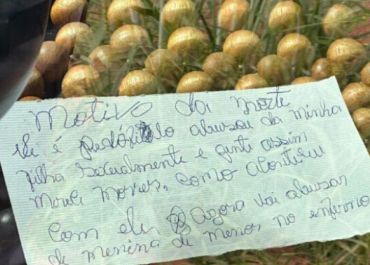 Motivo da morte
ele é pedófilo abusou da minha
filha sexualmente e gente assim
Merece Morrer, como aconteceu
Com ele Agora vai abusar
de menina de menor no inferno